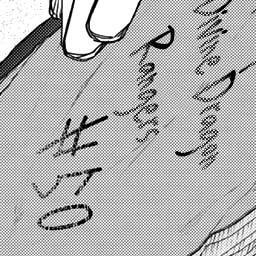 Divine Dragon
Rangers
#50